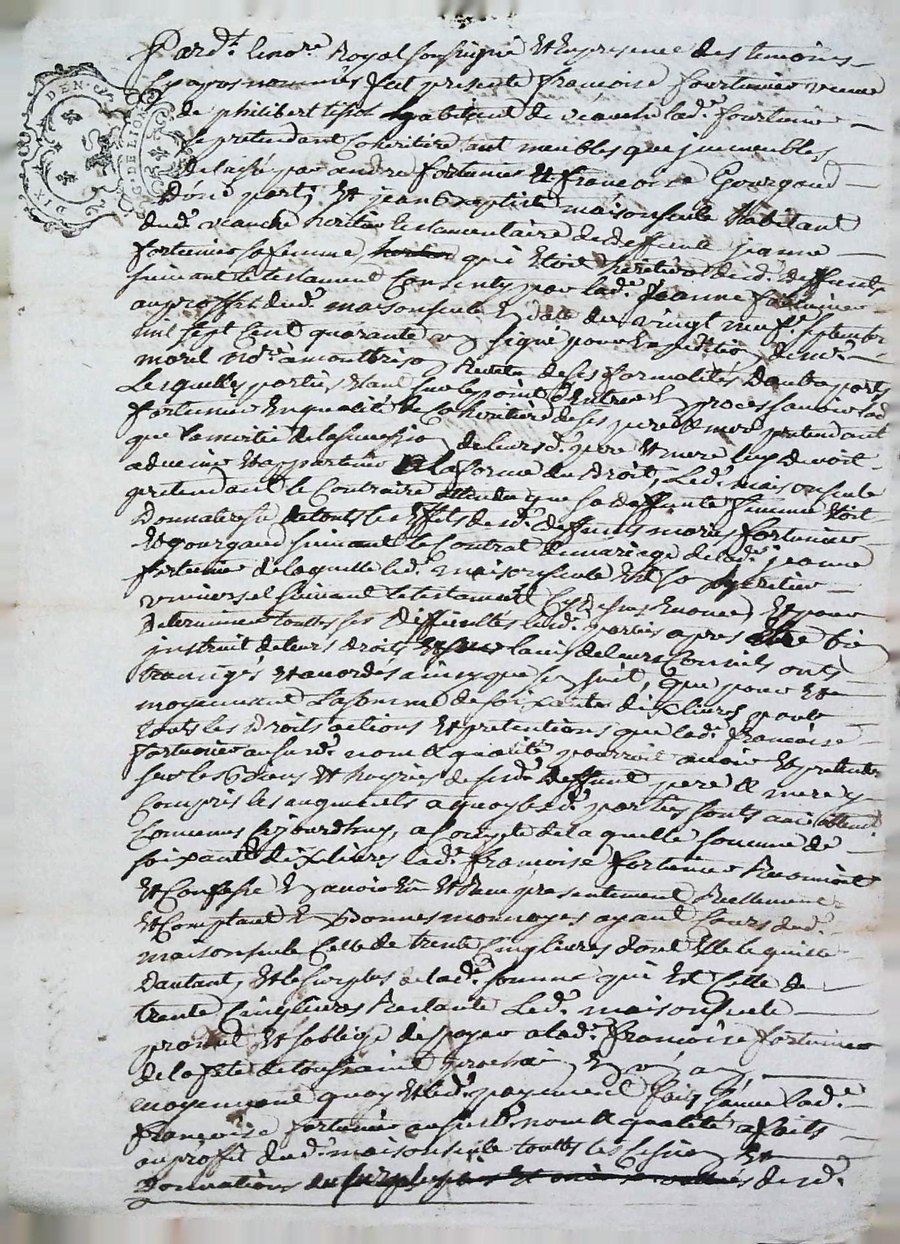 DIX DEN.
G. DE LION
Pard.t le no.re Royal soussigné Et En presence des temoins
apres nommés fut presente francoise fortunier veuve
de philibert tissot habitant de viauche lad.e fourtunier
se pretendant Coheritiere ant meubles que jmmeubles
delaissé par andre fortunier Et francoise Gourgaud
D'une part, Et jean Baptiste maisonseule Habitant
dud.t viauche heritier testamentaire de deffunte jeanne
fortunier sa femme, qui Etoit heritiere desd.t deffunts
suivant le testament Consenty par lad.e Jeanne fortunier
au proffit dud.t maisonseule En date du vingt neuf septembre
mil sept Cent quarante signé pour Expedition dud.t
morel no.re a montbrison Revetu de ses formalités Dautre part,
Lesquelles parties Etant sur le point D'Entrer En proces savoir lad.e
fortunier En qualité de Coheritiere de ses pere & mere pretendant
que la moitié de la succession de leurs d.t pere Et mere luy devoit
advenir Et appartenir a la forme du Droit, Led.t maisonseule
pretendant le Contraire attendu que sa deffunte femme Etoit
Donnateresse de touts les Effets desd.t deffunts mariés fortunier
Et gourgaud suivant le Contrat de mariage de lad.e jeanne
fortunier de laquelle led.t maisonseule Est heritier
universel suivant le testament Cy dessus Enoncé, Et pour
determiner touttes ses difficultés lesd.t parties apres Etre bien
jnstruit de leurs droits Et sur l'avis de leurs Conseils onts
transigés Et acordés ainsy que suit, Que pour Et
moyennant La somme de soixante dix livres pour
touts les Droits actions Et pretentions que lad.e francoise
fortunier au susd.t nom & qualité pourroit avoir Et pretendre
sur les Biens Et hoyries desd.t deffunt pere & mere y
Compris les augments a quoy lesd.t parties sonts
Convenues Cejourdhuy, a Compte de laquelle somme de
soixante dix livres lad.e francoise fortunier Reconnoit
Et Confesse En avoir Eu Et Receu presentement Reellement
Et Comptant En Bonnes monnoyes ayant Cours dud.t
maisonseule Celle de trente Cinq livres dont Elle le quitte
d'autant, Et le surplus de lad.e somme qui Est Celle de
trente Cinq livres Restante Led.t maisonseule
promet Et soblige de payer a lad.e francoise fortunier
de la fete de toussaint prochain En un an,
moyennant quoy Et led.t payement fait Comme lad.e
francoise fortunier au susd.t nom & qualité a faits
au profit dud.t maisonseule touttes les Cessions Et
Donnations desd.t